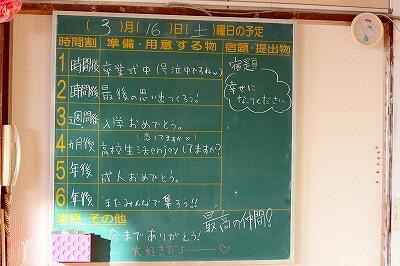 (3)月(16)日(土)曜日の予定
時間割 準備・用意する物 宿題・提出物
1 時間後 卒業式中(号泣中ですねw)
2 時間後 最後の思い出つくろう!
3 週間後 入学おめでとう。
恋してますか♡
4 カ月後 高校生活enjoyしてますか?
5 年後 成人おめでとう。
6 年後 またみんなで集ろう!!
宿題
幸せに
なってください
連絡・その他
最高の仲間!
今までありがとう!
大好きだよ――♡